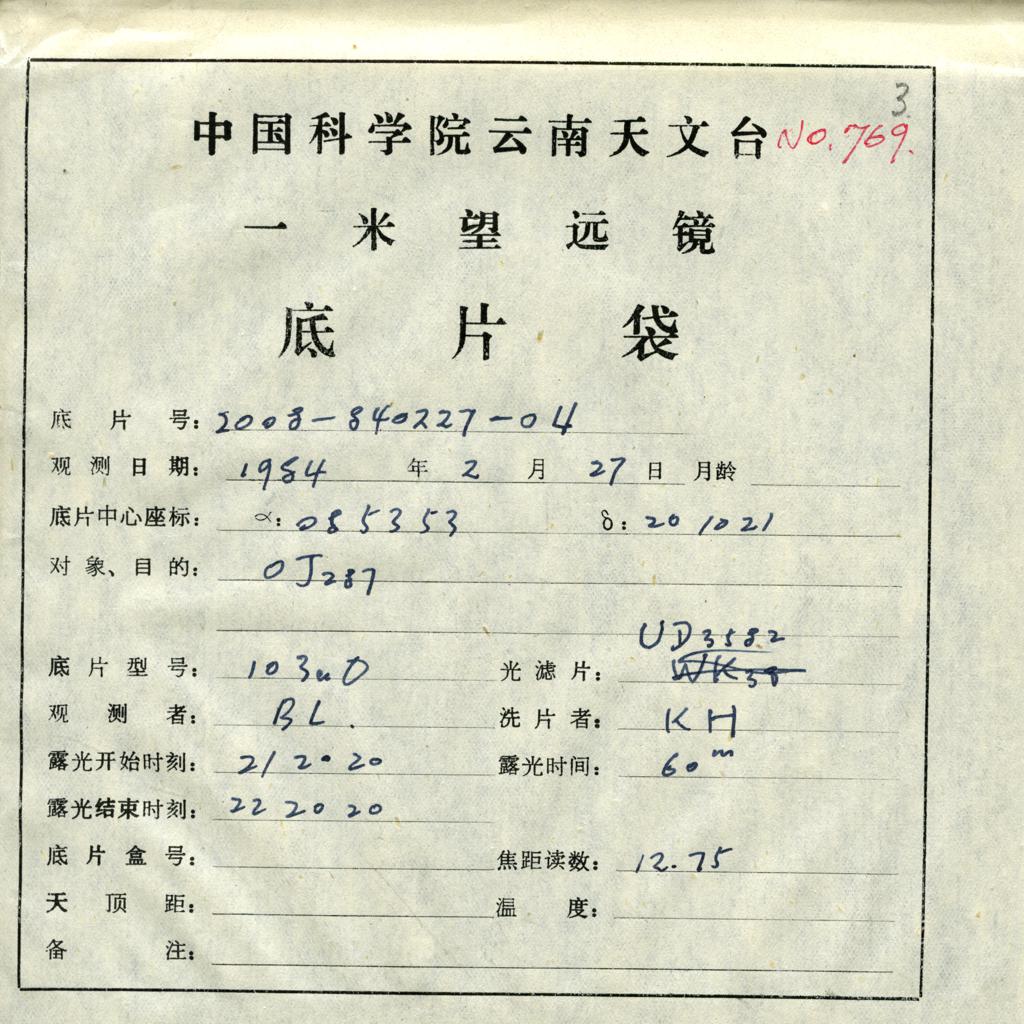 3
中国科学院云南天文台 No.769.
一米望远镜
底片袋
底片号: 2008-840227-04
观测日期: 1984 年 2 月 27 日 月龄
底片中心座标: α: 085353 δ: 20 10 21
对象、目的: OJ287
UD3582
底片型号: 103aO 光滤片:
观测者: BL. 洗片者: KH
露光开始时刻: 21 20 20 露光时间: 60m
露光结束时刻: 22 20 20
底片盒号: 焦距读数: 12.75
天顶距: 温度:
备注: